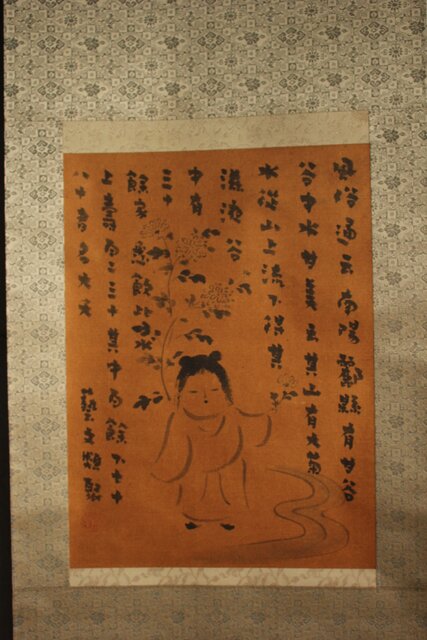 風俗通云南陽酈縣有甘谷
谷中水甘美云其上有大菊
水從山上流下得其
滋液谷
中有
三十
餘家悉飲此水
上壽百二三十其中百餘下七十
八十者名大夭
藝文類聚